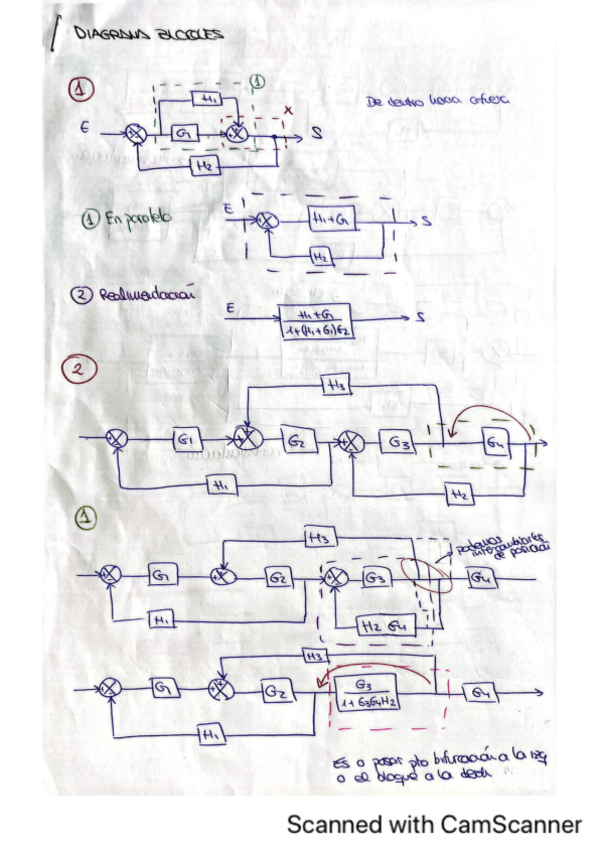 1 DIAGRAMA BLOQUES
1
1
H1
De dentro hacia afuera
x
E
G1
S
H2
1 En paralelo
E
H1+G1
S
H2
2 Realimentación
E
H1+G1
1+(H1+G1)G2
S
2
H3
G1
G2
G3
G4
H1
H2
1
H3
podemos
intercambiarles
de posición
G1
G2
G3
G4
H1
H2 G4
H3
G1
G2
G3
1+G3G4H2
G4
H1
Es o pasar pto bifurcación a la izq
o el bloque a la dech
Scanned with CamScanner